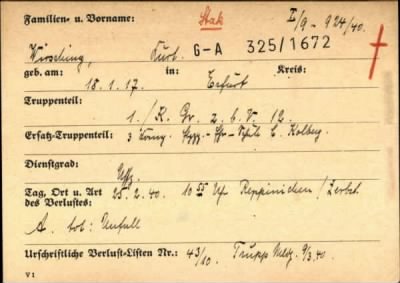 Familien- u. Vorname: Stak I/9 - 924/40.
Wirsching, Kurt. G-A 325/1672
geb. am: 18.1.17. in: Erfurt Kreis:
Truppenteil: 1./K. Gr. z. b. V. 12.
Ersatz-Truppenteil: 3 Komp. C. Kolberg.
Dienstgrad: Uffz.
Tag, Ort u. Art des Verlustes: 25.2.40. 10 55 Uhr Reppinichen / Zerbst.
A. tot: Unfall
Urschriftliche Verlust-Listen Nr.: 43/10. Trupp. Meldg. 9/3.40.
V 1